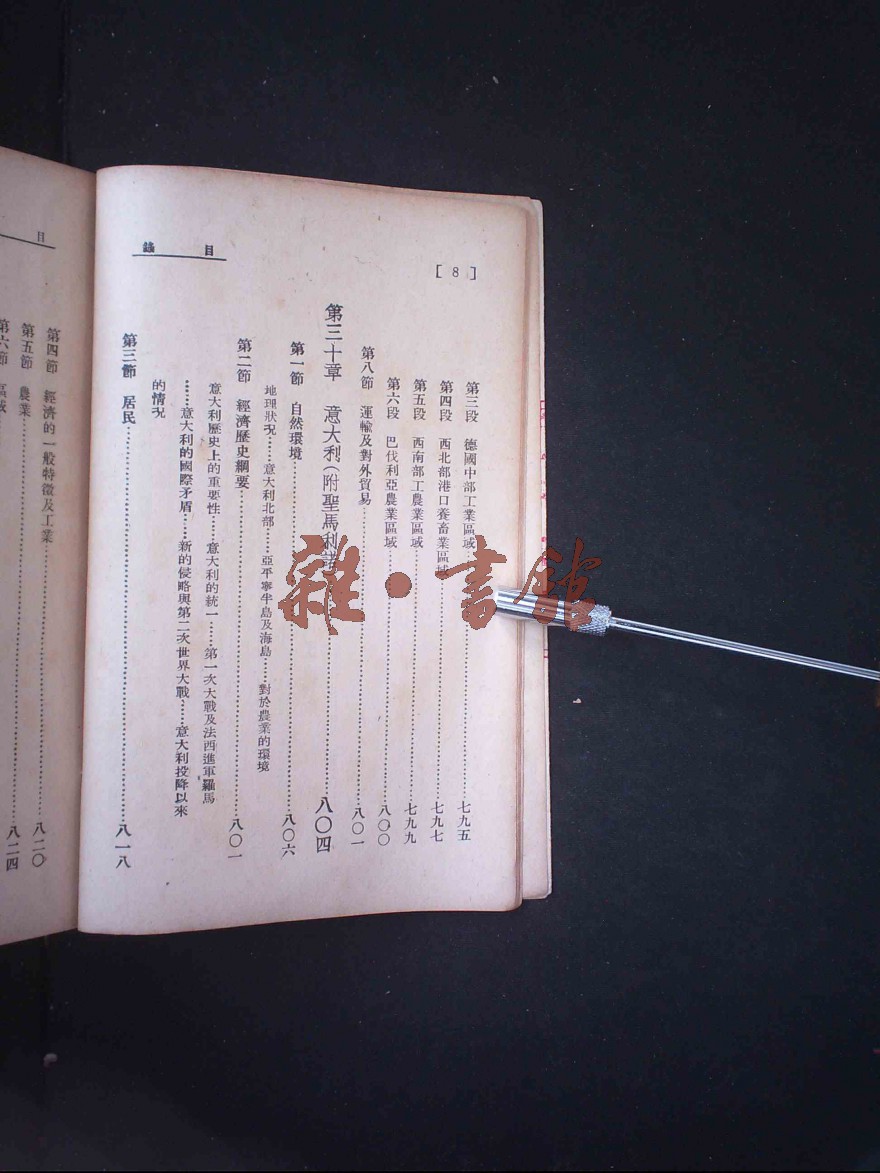 [ 8 ]
目錄
第三段 德國中部工業區域……七九五
第四段 西北部港口養畜業區域……七九七
第五段 西南部工農業區域……七九九
第六段 巴伐利亞農業區域……八〇〇
第八節 運輸及對外貿易……八〇一
第三十章 意大利(附聖馬利諾)……八〇四
第一節 自然環境……八〇六
地理狀況……意大利北部……亞平寧半島及海島……對於農業的環境
第二節 經濟歷史綱要……八〇一
意大利歷史上的重要性……意大利的統一……第一次大戰及法西進軍羅馬
……意大利的國際矛盾……新的侵略與第二次世界大戰……意大利投降以來
的情況
第三節 居民……八一八
目
第四節 經濟的一般特徵及工業……八二〇
第五節 農業……八二四
第六節 區域
雜·書館